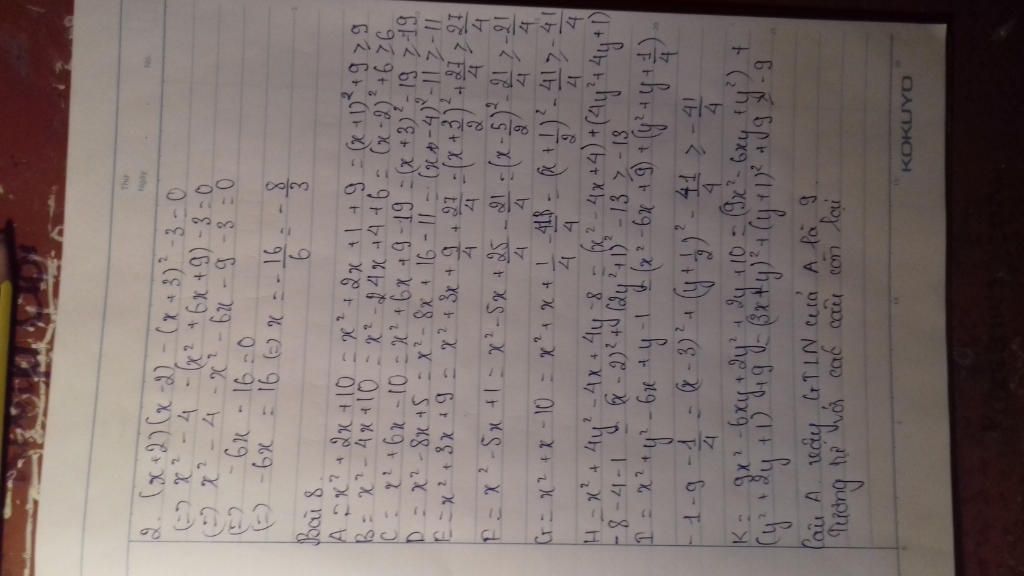 2. (x+2)(x-2) - (x+3)² - 3 = 0
(=) x² - 4 - (x² + 6x + 9) - 3 = 0
(=) x² - 4 - x² - 6x - 9 - 3 = 0
(=) - 6x - 16 = 0
(=) - 6x = 16 (=) x = - 16/6 = - 8/3
Bài 8.
A = x² + 2x + 10 = x² + 2x + 1 + 9 = (x+1)² + 9 ≥ 9
B = x² - 4x + 10 = x² - 4x + 4 + 6 = (x-2)² + 6 ≥ 6
C = x² + 6x - 10 = x² + 6x + 9 - 19 = (x+3)² - 19 ≥ -19
D = x² - 8x + 5 = x² - 8x + 16 - 11 = (x-4)² - 11 ≥ -11
E = x² + 3x + 9 = x² + 3x + 9/4 + 27/4 = (x + 3/2)² + 27/4 ≥ 27/4
F = x² - 5x + 1 = x² - 5x + 25/4 - 21/4 = (x - 5/2)² - 21/4 ≥ - 21/4
G = x² + x - 10 = x² + x + 1/4 - 41/4 = (x + 1/2)² - 41/4 ≥ - 41/4
H = x² + 4y² - 4x + 4y - 8 = (x² - 4x + 4) + (4y² + 4y + 1)
- 8 - 4 - 1 = (x - 2)² + (2y + 1)² - 13 ≥ - 13
I = x² + y² - 6x + y - 1 = (x² - 6x + 9) + (y² + y + 1/4)
- 1 - 9 - 1/4 = (x - 3)² + (y + 1/2)² - 41/4 ≥ - 41/4
K = 9x² - 6xy + 2y² + 2y + 10 = (9x² - 6xy + y²) +
(y² + 2y + 1) + 9 = (3x + y)² + (y + 1)² + 9 ≥ 9
Câu A vậy GTNN của A là 9
Tương tự với các câu còn lại
Thứ
Ngày
No.
KOKUYO